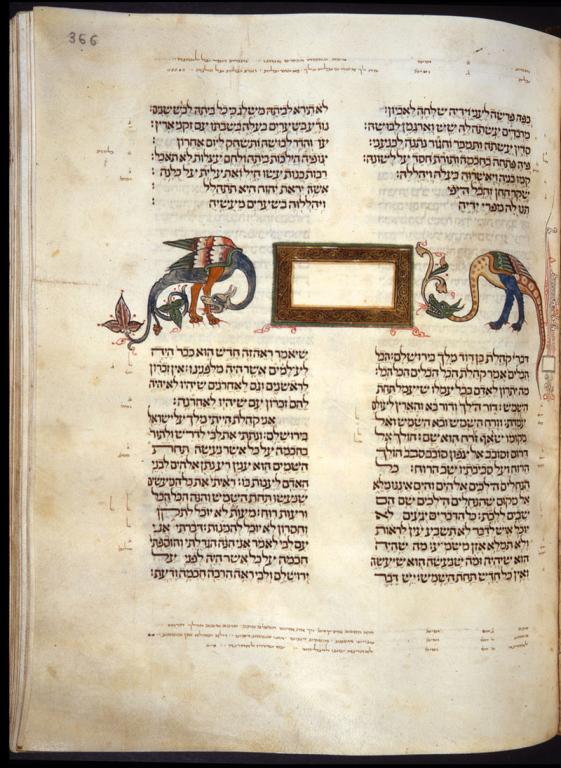 366
כפה פרשה לעני וידיה שלחה לאביון:
מרבדים עשתה לה שש וארגמן לבושה:
סדין עשתה ותמכר וחגור נתנה לכנעני:
פיה פתחה בחכמה ותורת חסד על לשונה:
קמו בניה ויאשרוה בעלה ויהללה:
שקר החן והבל היפי
תנו לה מפרי ידיה
לא תירא לביתה משלג כי כל ביתה לבש שנים:
נודע בשערים בעלה בשבתו עם זקני ארץ:
עז והדר לבושה ותשחק ליום אחרון
צופיה הליכות ביתה ולחם עצלות לא תאכל:
רבות בנות עשו חיל ואת עלית על כלנה
אשה יראת יהוה היא תתהלל
ויהללוה בשערים מעשיה
דברי קהלת בן דוד מלך בירושלים: הבל
הבלים אמר קהלת הבל הבלים הכל הבל:
מה יתרון לאדם בכל עמלו שיעמל תחת
השמש: דור הלך ודור בא והארץ לעולם
עמדת: וזרח השמש ובא השמש ואל
מקומו שואף זורח הוא שם: הולך אל
דרום וסובב אל צפון סובב סבב הולך
הרוח ועל סביבתיו שב הרוח: כל
הנחלים הלכים אל הים והים איננו מלא
אל מקום שהנחלים הלכים שם הם
שבים ללכת: כל הדברים יגעים לא
יוכל איש לדבר לא תשבע עין לראות
ולא תמלא אזן משמע: מה שהיה
הוא שיהיה ומה שנעשה הוא שיעשה
ואין כל חדש תחת השמש: יש דבר
שיאמר ראה זה חדש הוא כבר היה
לעלמים אשר היה מלפננו: אין זכרון
לראשנים וגם לאחרנים שיהיו לא יהיה
להם זכרון עם שיהיו לאחרנה:
אני קהלת הייתי מלך על ישראל
בירושלם: ונתתי את לבי לדרוש ולתור
בחכמה על כל אשר נעשה תחת
השמים הוא ענין רע נתן אלהים לבני
האדם לענות בו: ראיתי את כל המעשים
שנעשו תחת השמש והנה הכל הבל
ורעות רוח: מעות לא יוכל לתקן
וחסרון לא יוכל להמנות: דברתי אני
עם לבי לאמר אני הנה הגדלתי והוספתי
חכמה על כל אשר היה לפני על
ירושלם ולבי ראה הרבה חכמה ודעת: